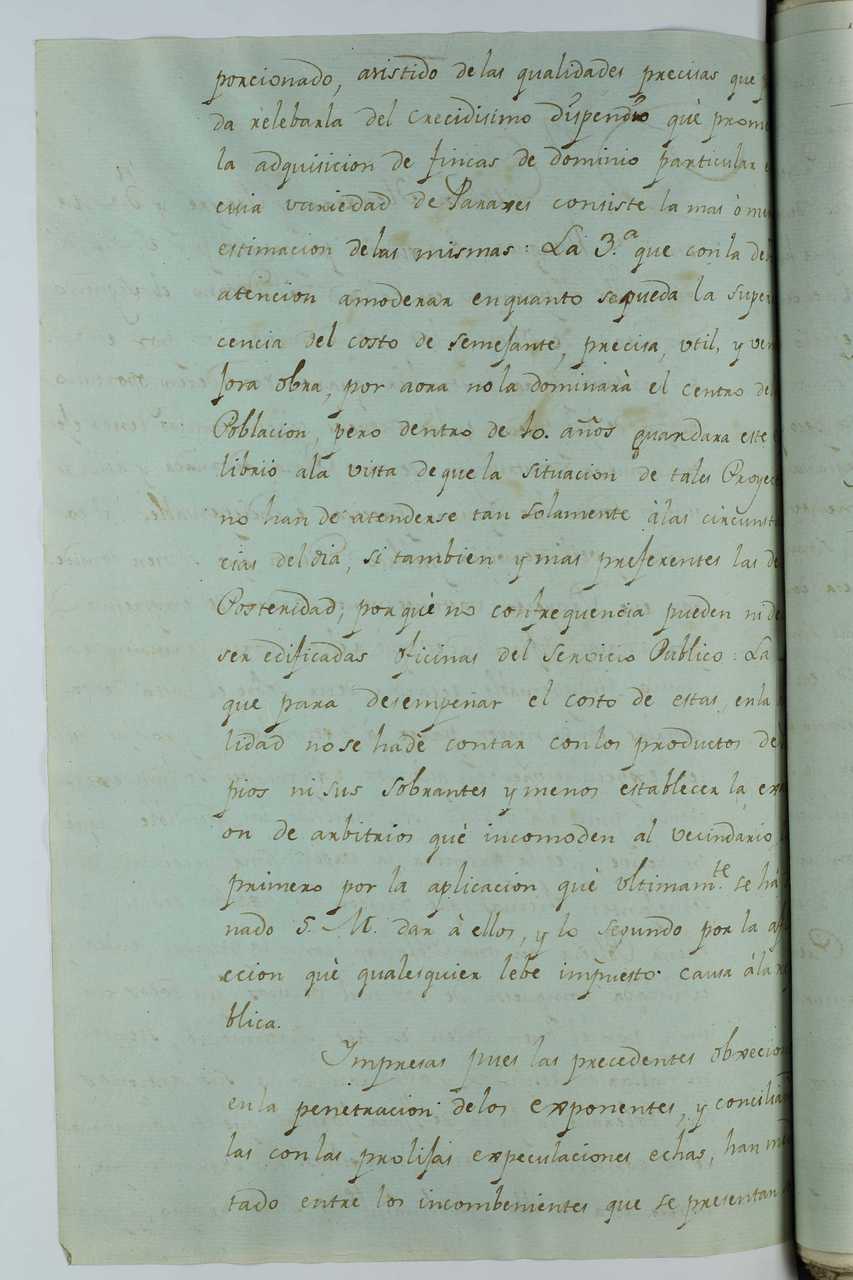 porcionado, asistido de las qualidades precisas que p
da relebarla del crecidisimo dispendio què prome
la adquisicion de fincas de dominio particular e
cuia variedad de Parares consiste la mas ò me
estimacion de las mismas: La 3.ª que con la de
atencion a moderar en quanto se pueda la super
cencia del costo de semejante, precisa, util, y ven
josa obra, por aora no la dominarà el centro de
Poblacion, pero dentro de 10. años guardara este
librio a la vista de que la situacion de tales Proyec
no han de atenderse tan solamente à las circunsta
cias del dia, si tambien y mas preferentes las de
Posteridad; por què no con frequencia pueden ni de
ser edificadas oficinas del servicio Publico: La
que para desempeñar el costo de estas, en la
lidad no se hadè contar con los productos de
pios ni sus sobrantes y menos establecer la exa
on de arbitrios què incomoden al vecindario
primero por la aplicacion què ultimam.te se hà
nado S. M. dar à ellos, y lo segundo por la af
eccion què qualesquier lebe impuesto causa à la
blica.
Impresas pues las precedentes obxecion
en la penetracion de los exponentes, y concilian
las con las prolijas expeculaciones echas, han me
tado entre los incombenientes que se presentan